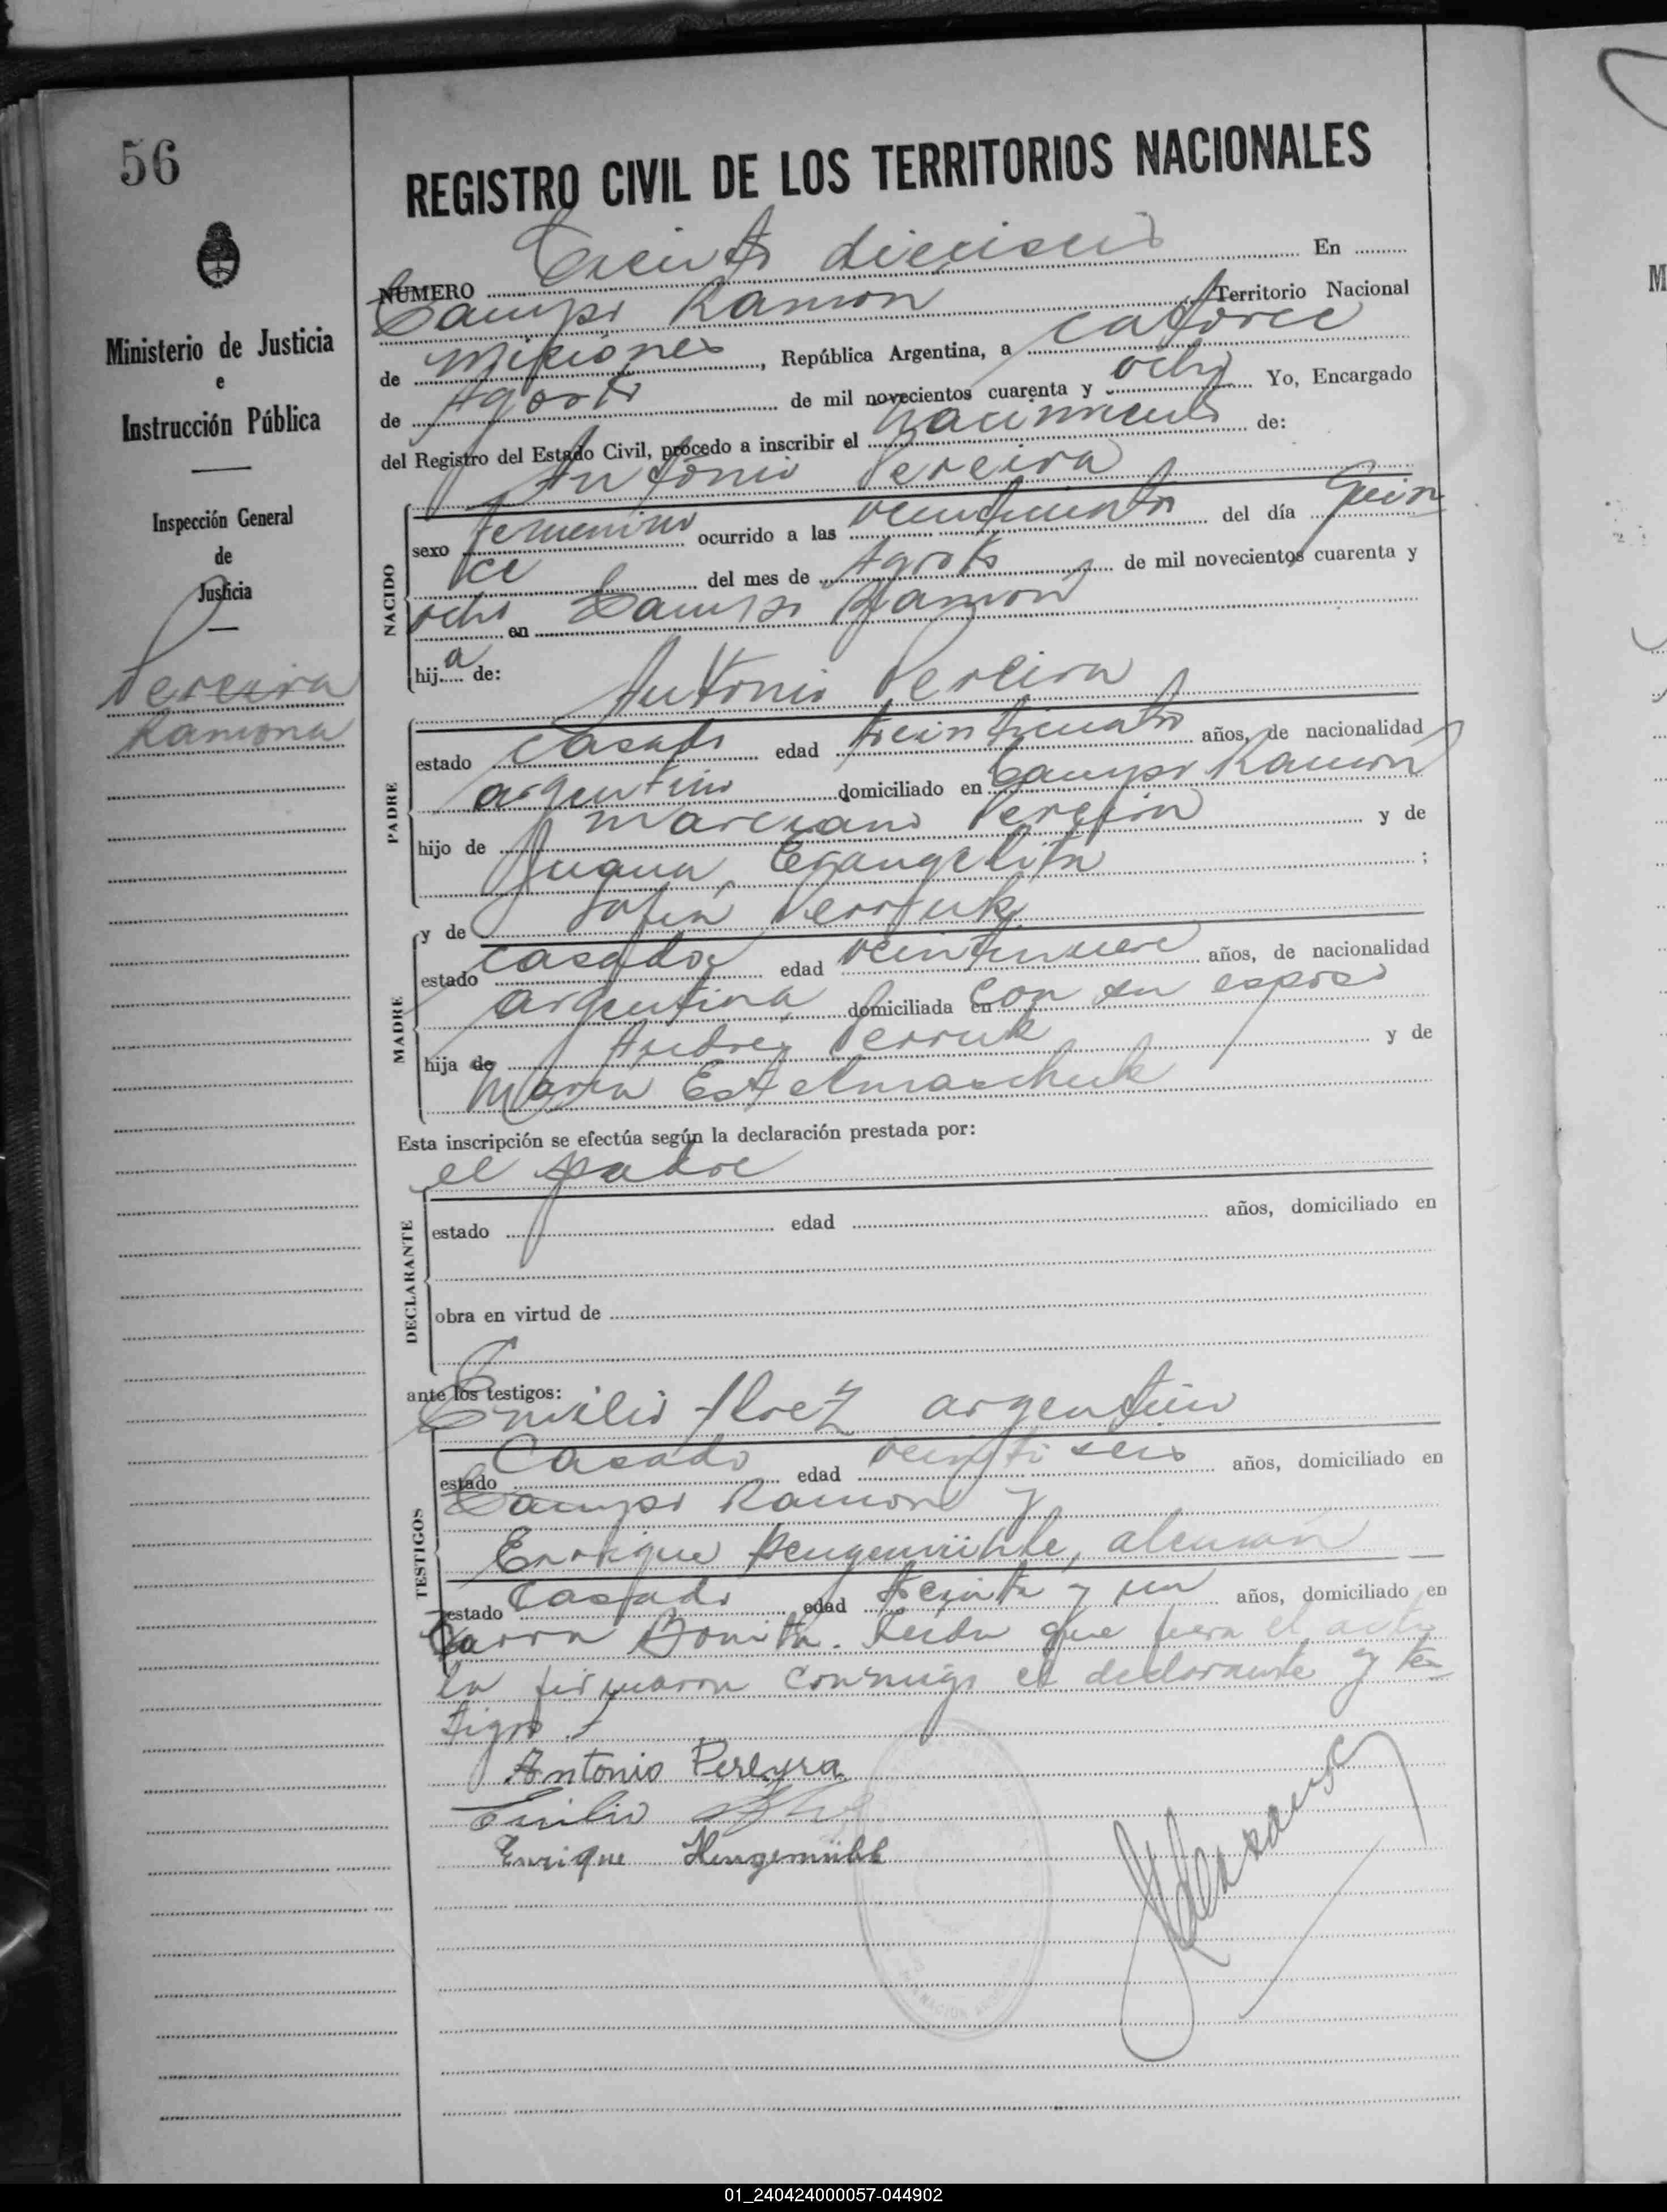 56
REGISTRO CIVIL DE LOS TERRITORIOS NACIONALES
Ministerio de Justicia
e
Instrucción Pública
Inspección General
de
Justicia
Pereira
Ramona
NÚMERO Ciento dieciseis En
Campo Ramon Territorio Nacional
de Misiones, República Argentina, a catorce
de Agosto de mil novecientos cuarenta y ocho Yo, Encargado
del Registro del Estado Civil, procedo a inscribir el nacimiento de:
Antonio Pereira
NACIDO
sexo femenino ocurrido a las del día quin
ce del mes de Agosto de mil novecientos cuarenta y
ocho en Campo Ramon
hija de: Antonio Pereira
PADRE
estado casado edad treinticuatro años, de nacionalidad
argentino domiciliado en Campo Ramon
hijo de Marciano Pereira y de
Juana Evangelista ;
MADRE
y de Sofia
estado casada edad veintinueve años, de nacionalidad
argentina, domiciliada en con su esposo
hija de Andres Perruk y de
Maria Estelmaschuk
Esta inscripción se efectúa según la declaración prestada por:
el padre
DECLARANTE
estado edad años, domiciliado en
obra en virtud de
ante los testigos:
Emilio floez argentino
TESTIGOS
estado Casado edad veintiseis años, domiciliado en
Campo Ramon y
Enrique Hengemühle, aleman
estado Casado edad treinta y un años, domiciliado en
Barra Bonita. Leida que fuera el acta
la firmaron conmigo el declarante y tes
tigos.
Antonio Pereyra
Emilio
Enrique Hengemühle
01_240424000057-044902